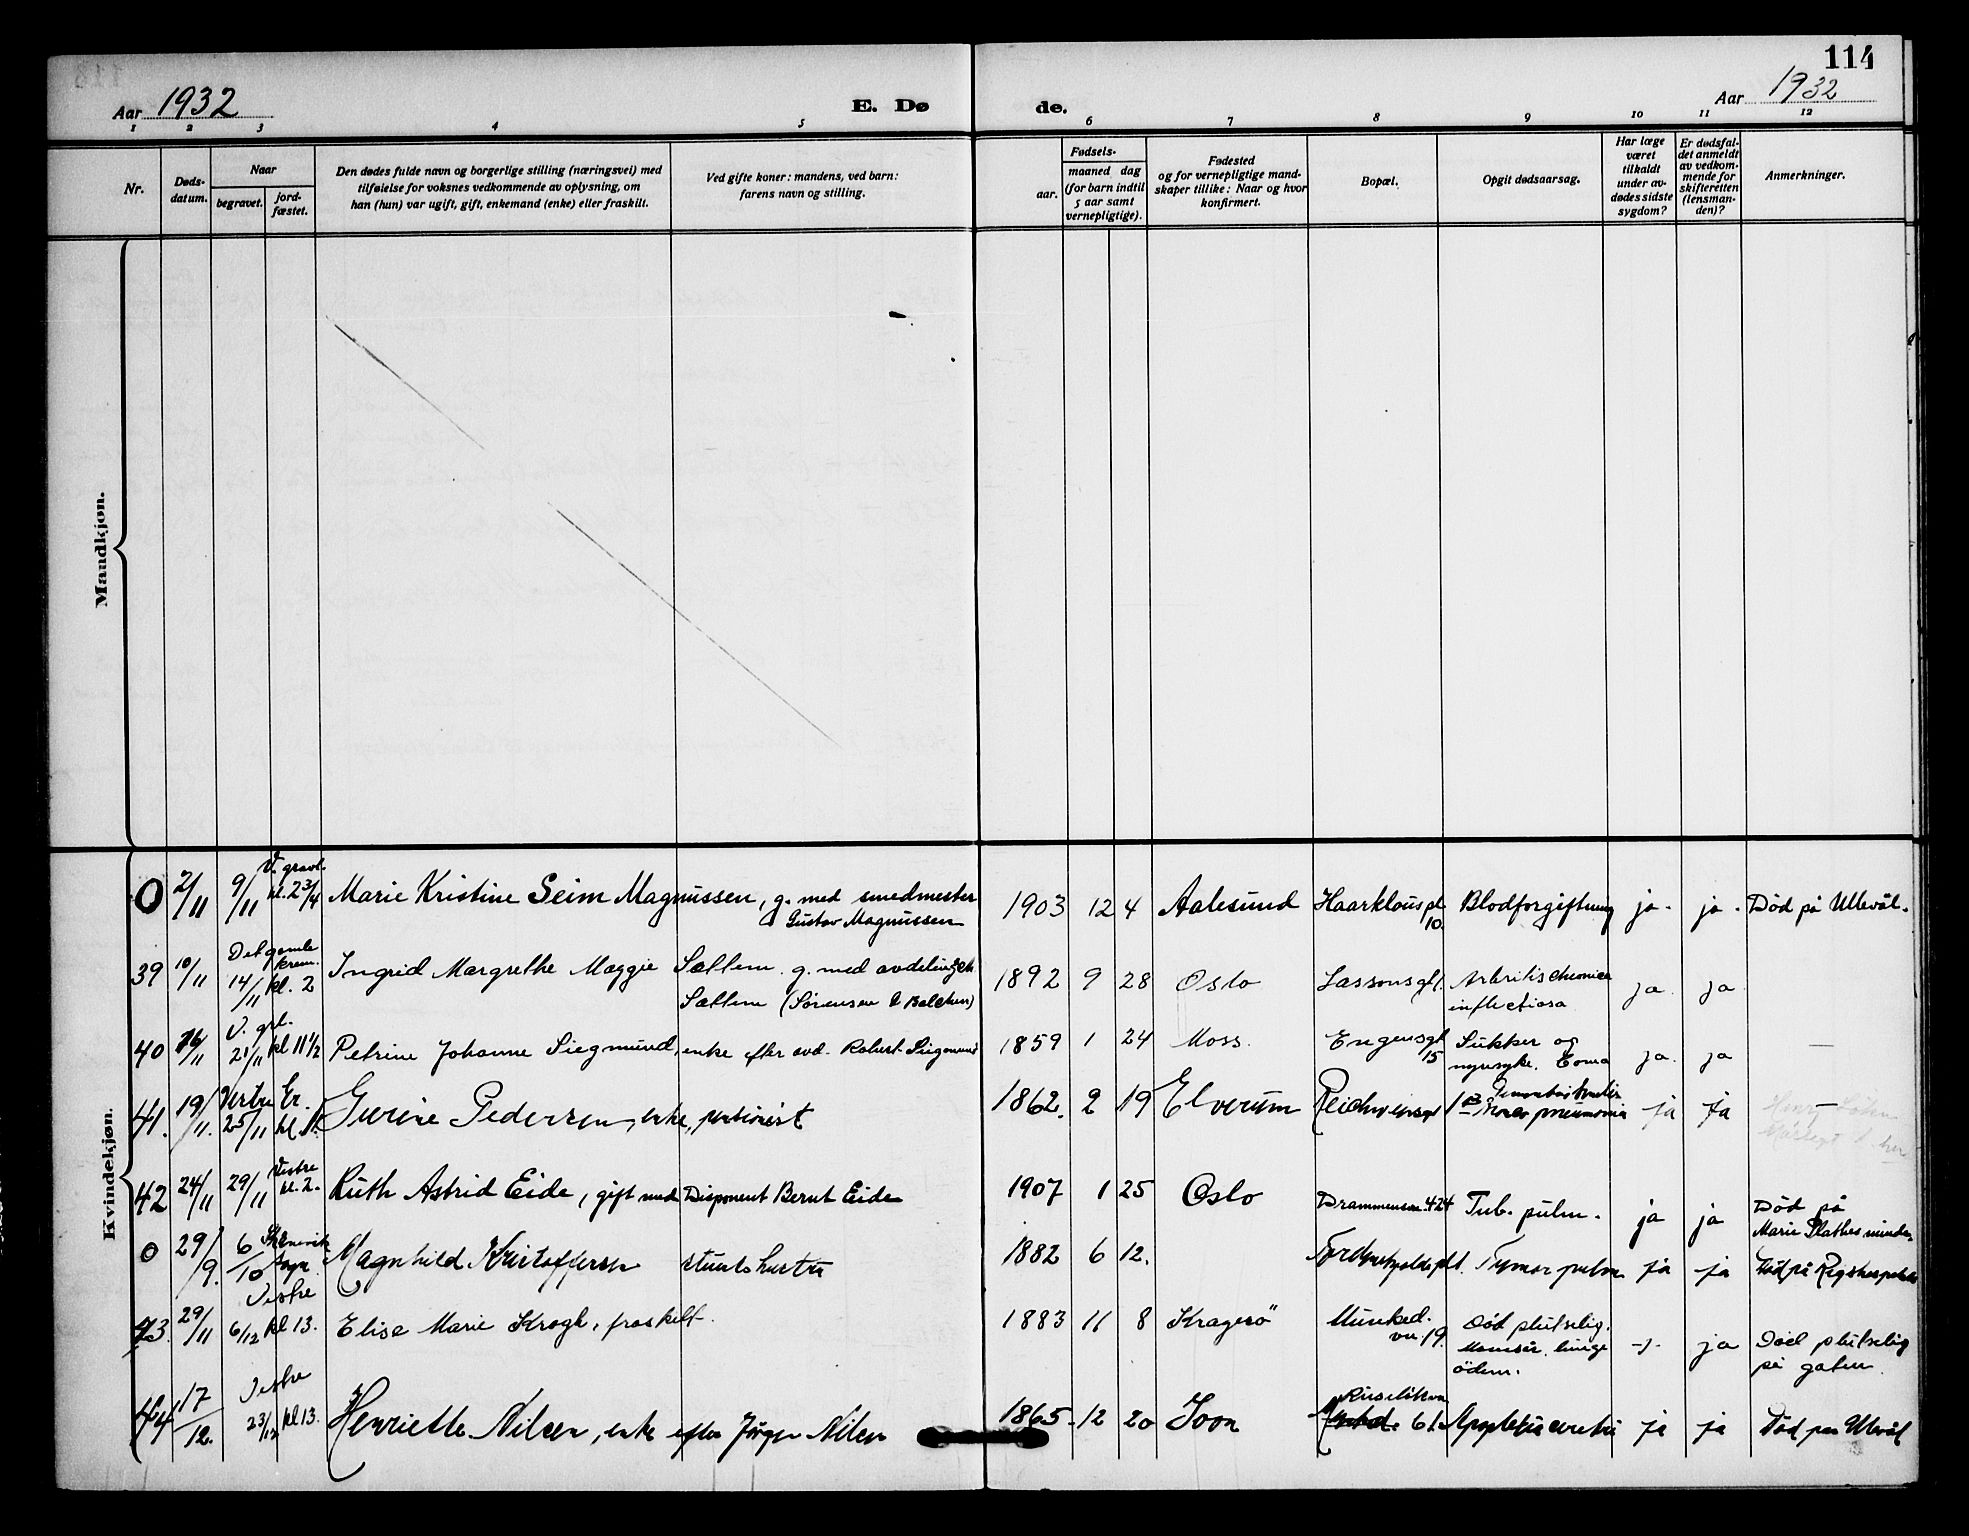 114
Aar 1932
E. Dø
de.
Aar 1932
1 2 3 4 5 6 7 8 9 10 11 12
Nr.
Døds-
datum.
Naar
begravet.
jord-
fæstet.
Den dødes fulde navn og borgerlige stilling (næringsvei) med
tilføielse for voksnes vedkommende av oplysning, om
han (hun) var ugift, gift, enkemand (enke) eller fraskilt.
Ved gifte koner: mandens, ved barn:
farens navn og stilling.
Fødsels-
aar.
maaned dag
(for barn indtil
5 aar samt
vernepligtige).
Fødested
og for vernepligtige mand-
skaper tillike: Naar og hvor
konfirmert.
Bopæl.
Opgit dødsaarsag.
Har læge
været
tilkaldt
under av-
dødes sidste
sygdom?
Er dødsfal-
det anmeldt
av vedkom-
mende for
skifteretten
(lensman-
den)?
Anmerkninger.
Mandkjøn.
Kvindekjøn.
V. gravl.
0 2/11 9/11 kl. 2 3/4 Marie Kristine Seim Magnussen, g. med smedmester 1903 12 4 Aalesund Haarklous pl. Blodforgiftning ja. ja. Død på Ullevål.
Gustav Magnussen 10.
Det gamle
krem.
39 10/11 14/11 kl. 2 Ingrid Margrethe Maggie Sættem g. med avdelingsch. 1892 9 28 Oslo Lassonsgt 1. ja. ja
Sættem (Sørensen & Balchen)
V. grl.
40 16/11 21/11 kl 11 1/2 Petrine Johanne Siegmund, enke efter avd. Robert Siegmund 1859 1 24 Moss. Engensgt Sukker og ja. ja —
15 nyresyke. Coma
41. 19/11. 25/11 kl 1. Gurine Pedersen, enke, pensionist 1862. 2 19 Elverum Reichweinsgt 1 pneumonia ja ja
Vestre
42 24/11 29/11 kl. 2. Ruth Astrid Eide, gift med Disponent Bernt Eide 1907 1 25 Oslo Drammensv. 424 Tub. pulm. ja ja Død på
Marie Plathes minde.
0 29/9. 6/10 Magnhild Kristoffersen stuerts hustru 1882 6 12. Tumor pulm ja ja Død på Rigshospitalet
Vestre
43. 29/11 6/12 kl 13. Elise Marie Krogh, fraskilt 1883 11 8 Kragerø Munked. Død plutselig. ja Død plutselig
vn. 19. ödem. på gaten
Vestre
44 17/12. 23/12 kl 13. Henriette Nilsen, enke efter Jørgen Nilsen 1865. 12 20 Soon Ruseløkvn ja ja Død paa Ullevål